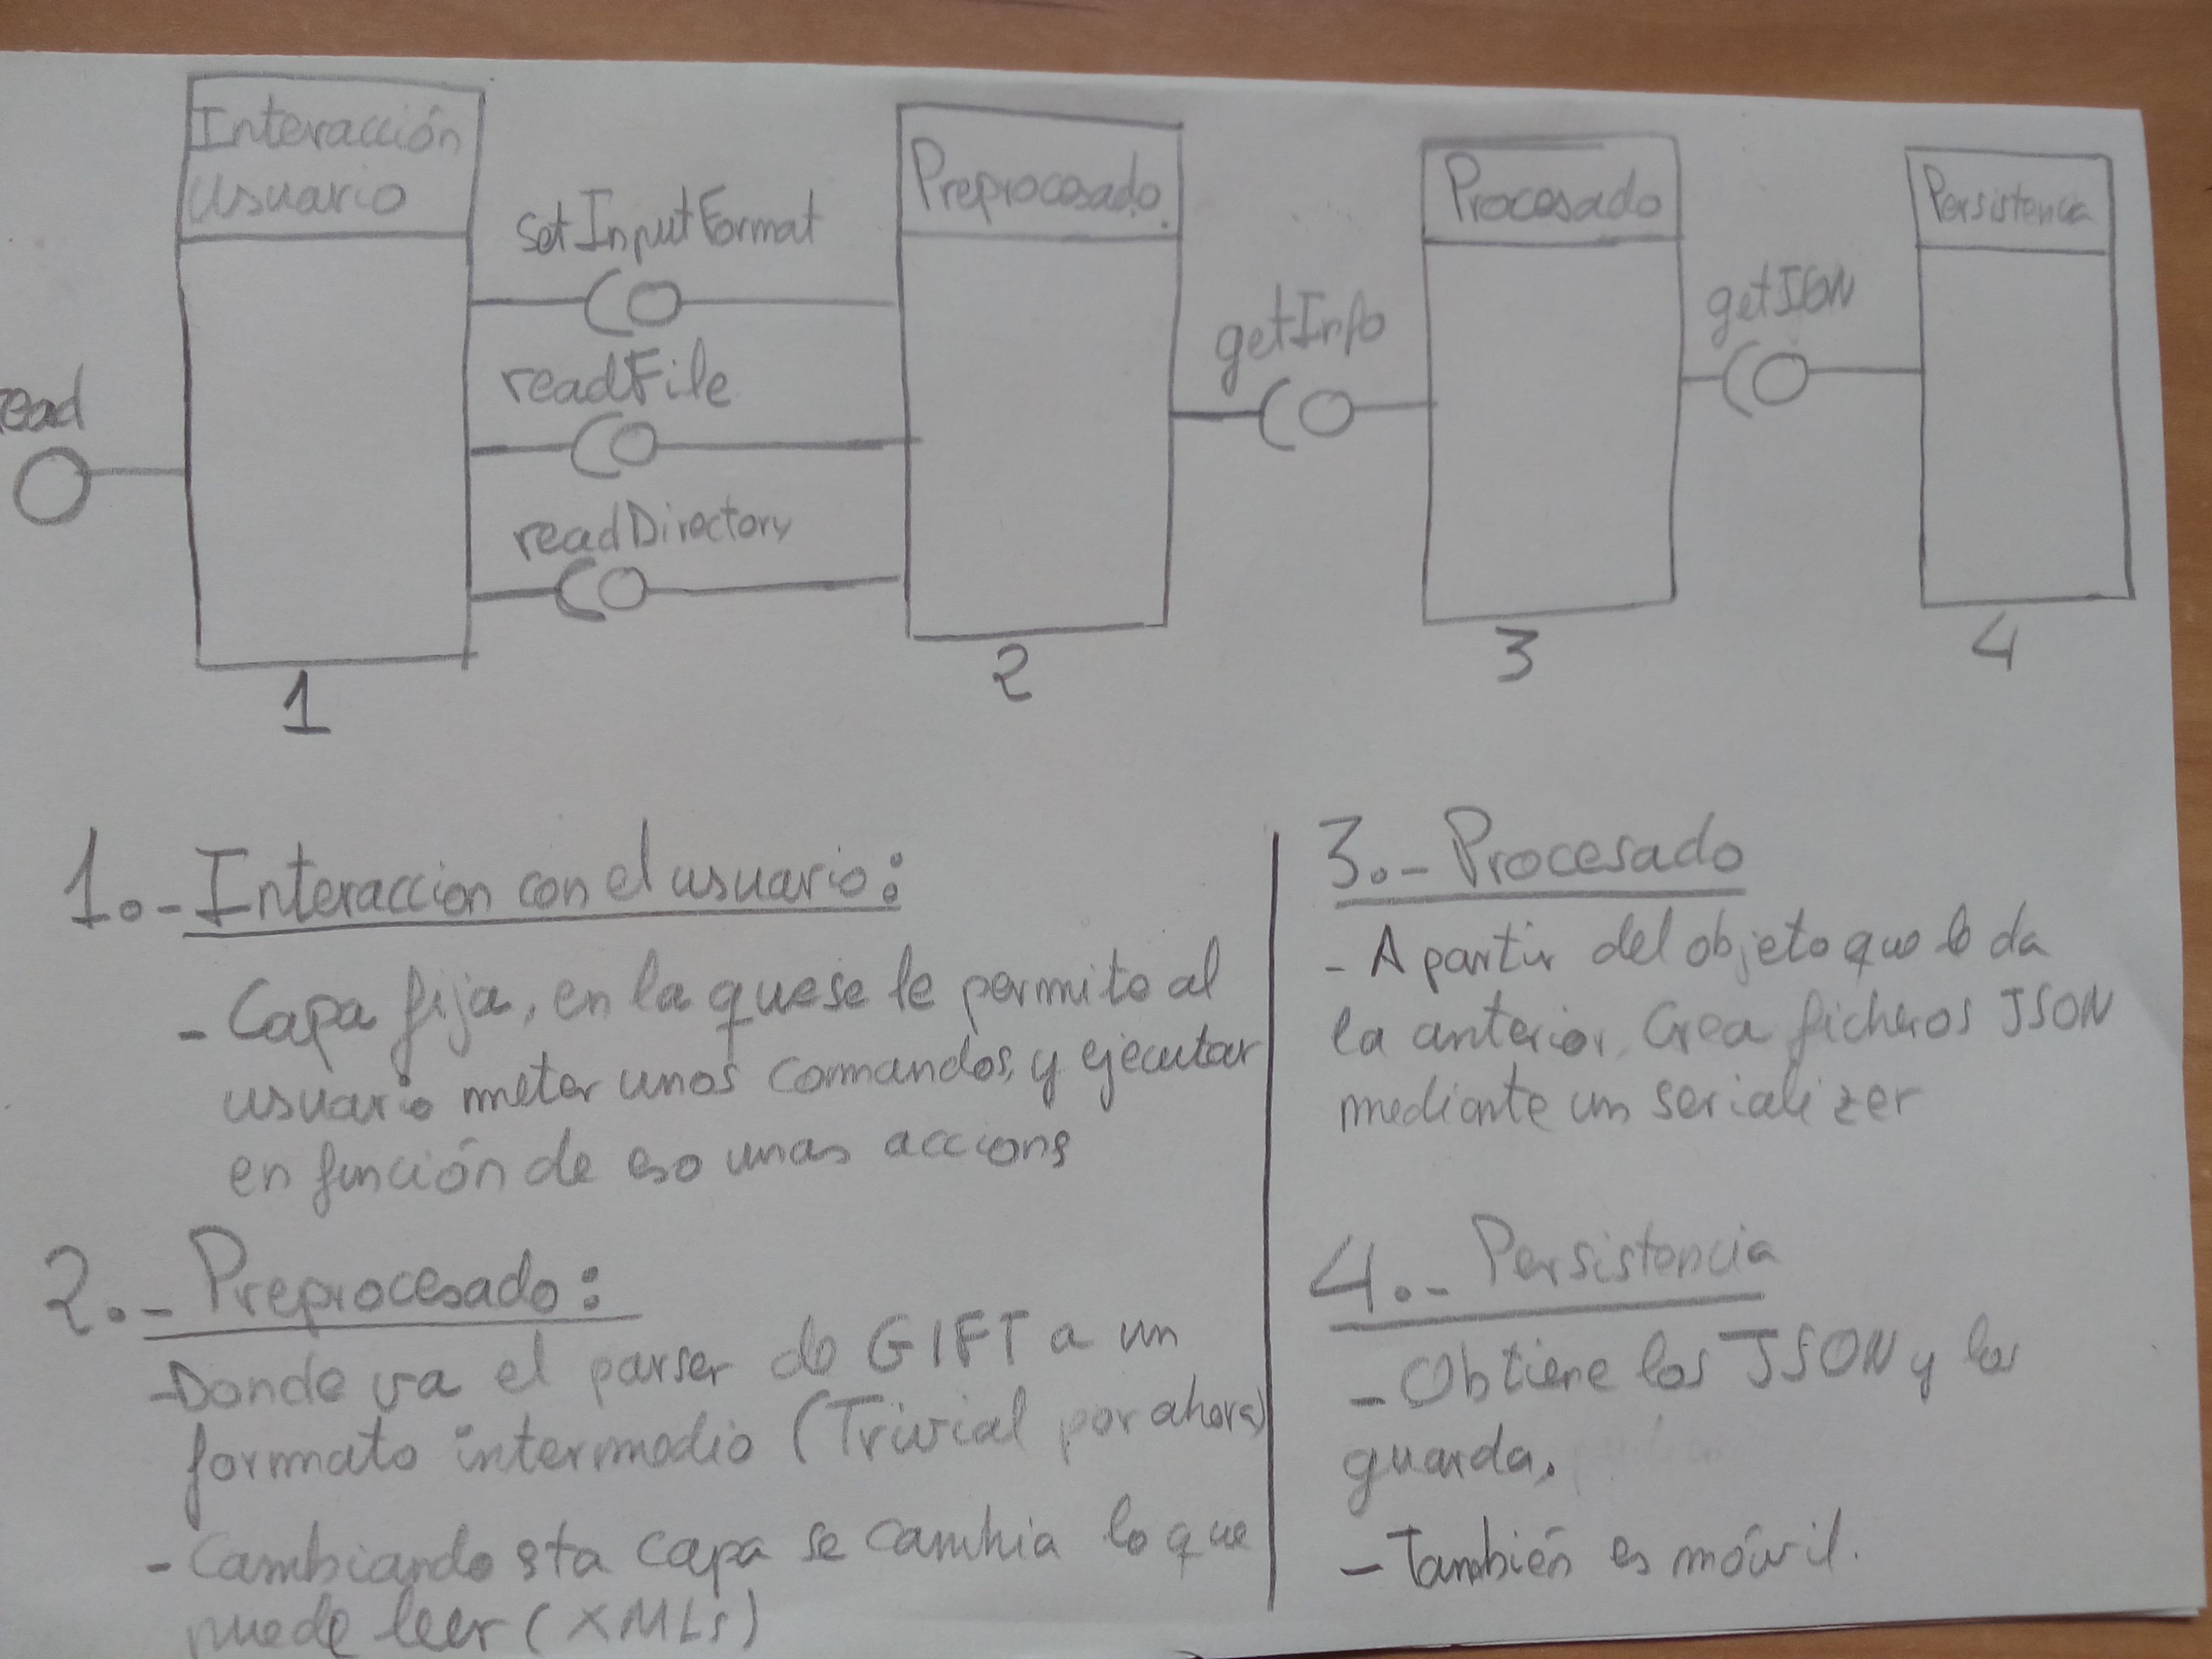 Interacción
Usuario
setInputFormat
Preprocesado
Procesado
Persistencia
readFile
getInfo
getJSON
ead
readDirectory
1
2
3
4
1.- Interaccion con el usuario:
- Capa fija, en la que se le permite al
usuario meter unos comandos, y ejecutar
en función de eso unas accions
2.- Preprocesado:
- Donde va el parser de GIFT a un
formato intermedio (Trivial por ahora)
- Cambiando sta capa se cambia lo que
puede leer (XMLs)
3.- Procesado
- A partir del objeto que le da
la anterior. Crea ficheros JSON
mediante un serializer
4.- Persistencia
- Obtiene los JSON y los
guarda.
- También es móvil.